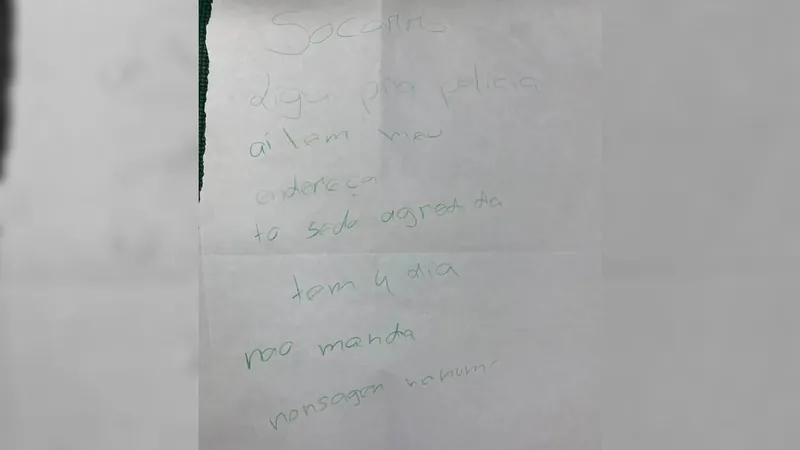 Socorro
Ligu pra policia
ai tem meu
endereça
to sedo agredida
tem 4 dia
nao manda
monsagen